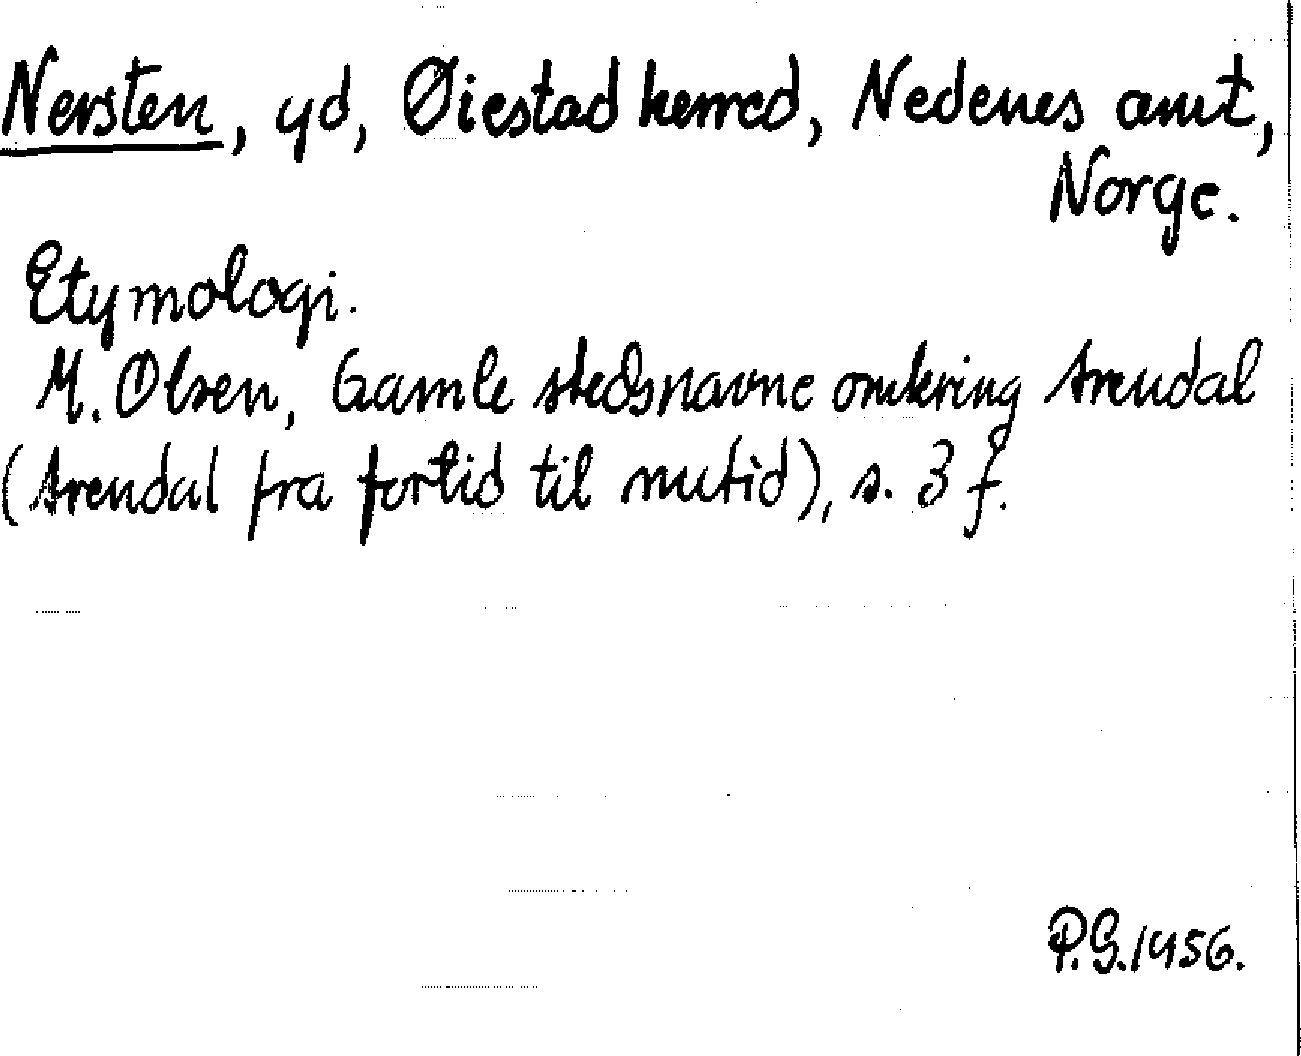 Nersten, gd, Øiestad herred, Nedenes amt,
Norge.
Etymologi.
M. Olsen, Gamle stedsnavne omkring Arendal
(Arendal fra fortid til nutid), s. 3 f.
P.G. 1956.